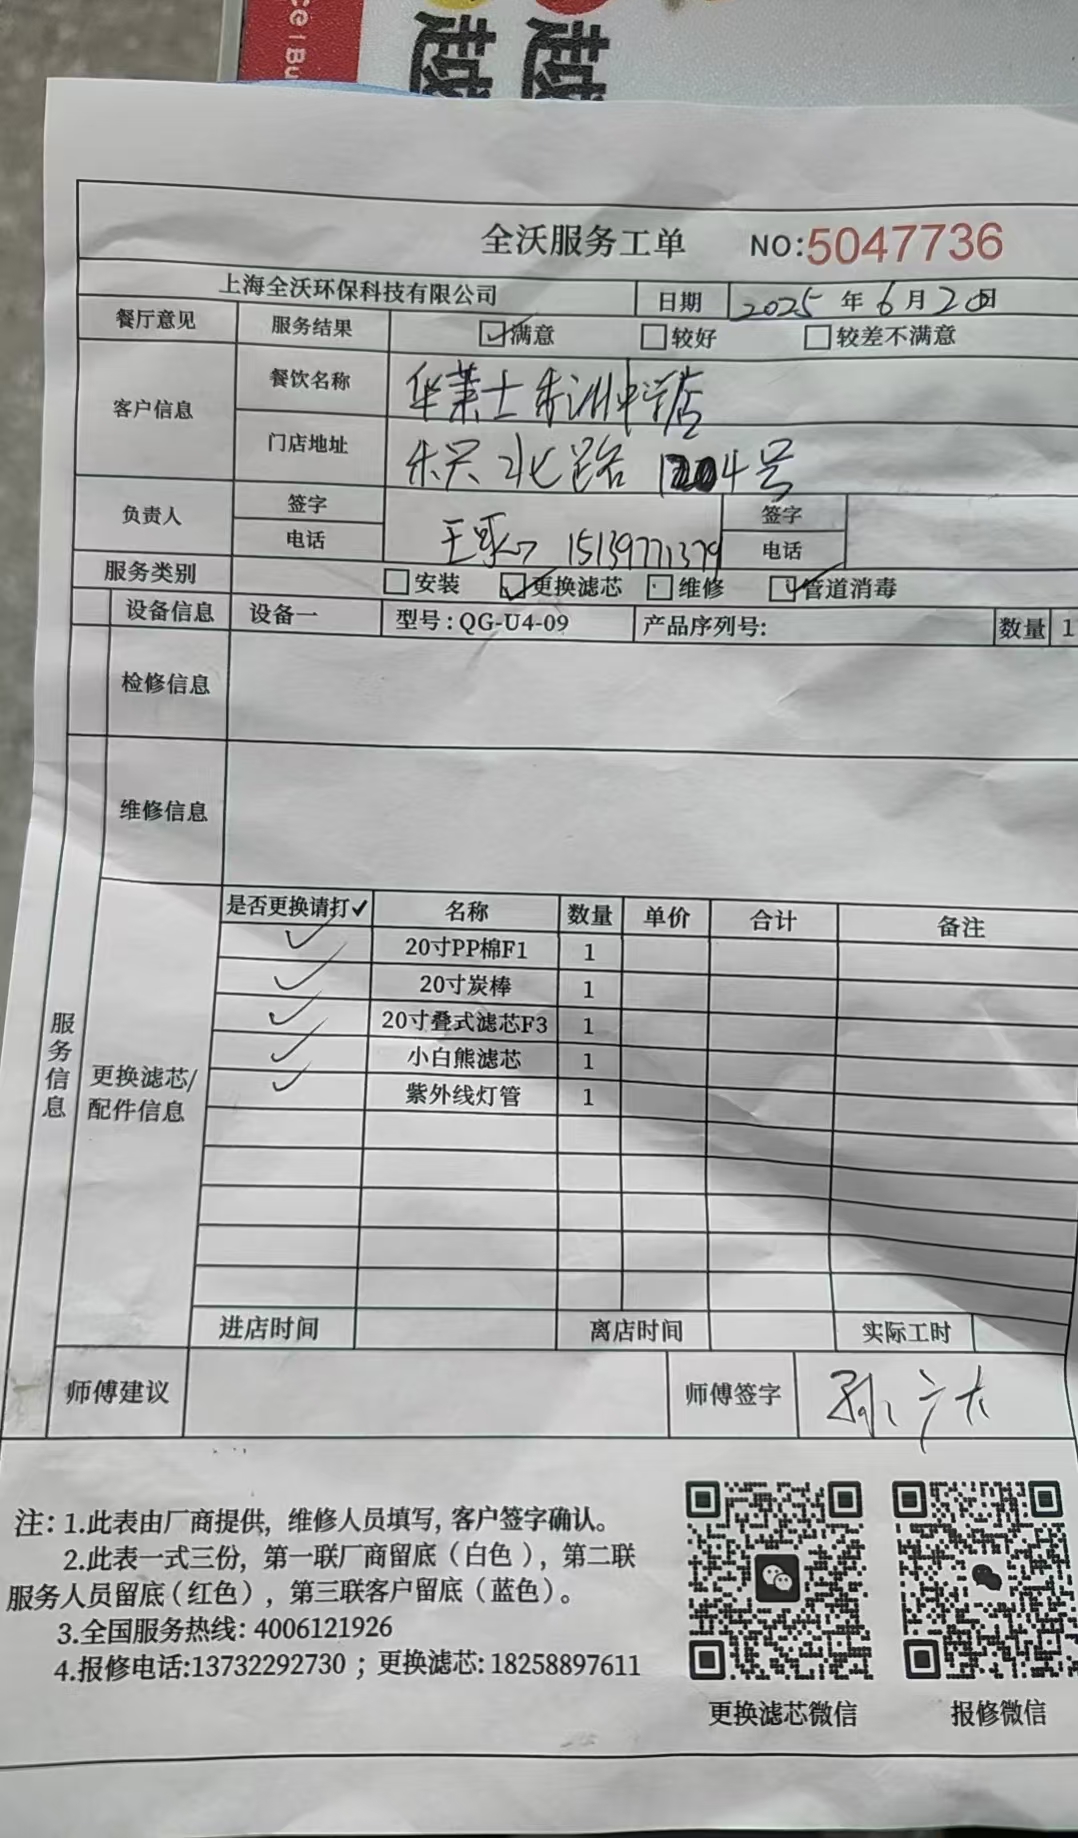 ce | Bu
越 越
全沃服务工单 NO:5047736
上海全沃环保科技有限公司 日期 2025 年 6 月 20 日
餐厅意见 服务结果 ☑满意 ☐较好 ☐较差不满意
客户信息 餐饮名称 华莱士朱洲中学店
门店地址 北路 4号
负责人 签字 王 签字
电话 15139771379 电话
服务类别 ☐安装 ☑更换滤芯 ☐维修 ☑管道消毒
设备信息 设备一 型号:QG-U4-09 产品序列号: 数量 1
检修信息
维修信息
服务信息
更换滤芯/配件信息
是否更换请打✓ 名称 数量 单价 合计 备注
✓ 20寸PP棉F1 1
✓ 20寸炭棒 1
✓ 20寸叠式滤芯F3 1
✓ 小白熊滤芯 1
✓ 紫外线灯管 1
进店时间 离店时间 实际工时
师傅建议 师傅签字 孙
注: 1.此表由厂商提供, 维修人员填写, 客户签字确认。
2.此表一式三份, 第一联厂商留底(白色), 第二联
服务人员留底(红色), 第三联客户留底(蓝色)。
3.全国服务热线: 4006121926
4.报修电话:13732292730 ; 更换滤芯: 18258897611
更换滤芯微信 报修微信